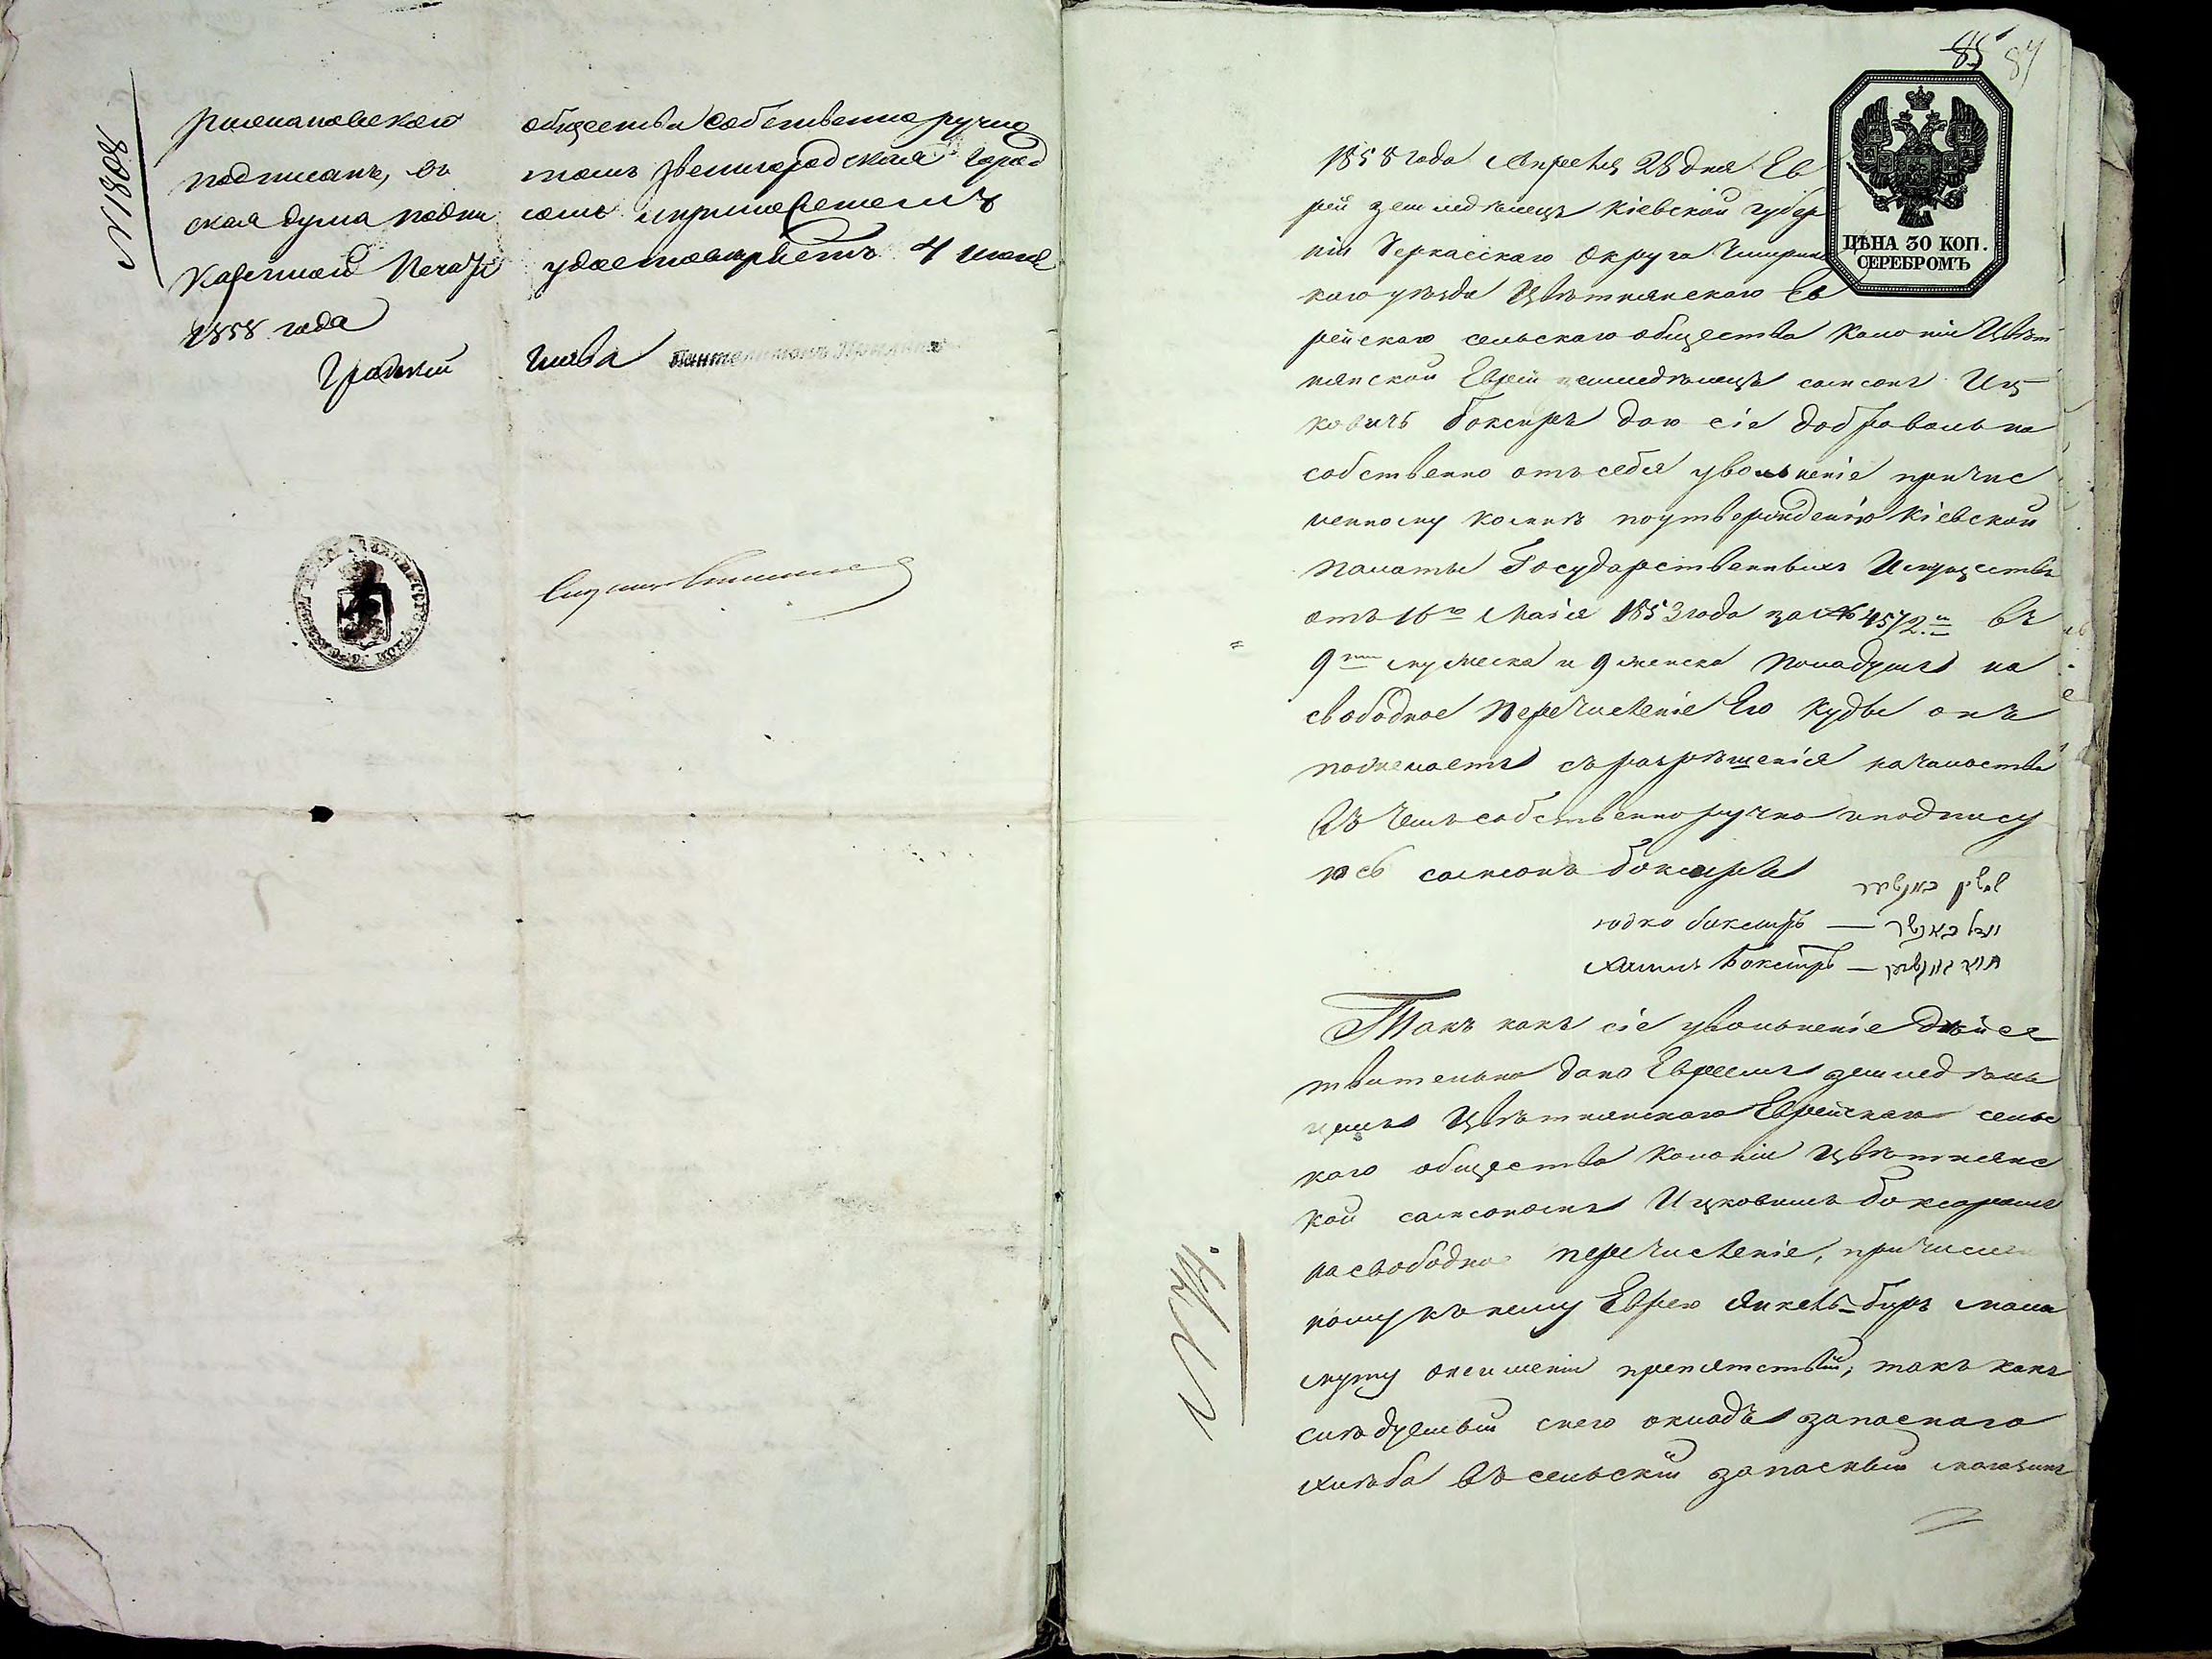 № 1808
общества собственноручно
подписанъ, въ томъ Звенигородская Город
ская дума подписомъ и приложеніемъ
Казенной Печати удостовѣряетъ 4 июня
1858 года
Градскій Глава
85 84
ЦѢНА 30 КОП.
СЕРЕБРОМЪ
1858 года Апрѣля 28 дня Ев
рей земледѣлецъ Кіевской губер
ніи Черкасскаго Округа Чигринс
каго уѣзда Цвѣтнянскаго Ев
рейскаго сельскаго общества Колоніи Цвѣт
нянской Еврей земледѣлецъ самсонъ Иц
ковичъ Боксиръ даю сіе добровольна
собственно отъ себя увольненіе причис
ленному комнѣ поутвержденію Кіевской
Палаты Государственныхъ Имуществъ
отъ 16го Маія 1853 года за № 4572.м въ
9ти мужеска и 9 женска пола душъ на
свободное Перечисленіе Его куды онъ
пожелаетъ съ разрѣшенія началства
Въ чемъ собственноручно и подпису
юсь самсонъ боксиръ
юдко боксиръ —
Хаимъ Боксиръ —
Такъ какъ сіе увольненіе дѣйс
твительна дано Евреемъ земледѣль
цемъ Цвѣтнянскаго Еврейскаго сельс
каго общества Колоніи Цвѣтнянс
кой самсономъ Ицковимъ боксиромъ
на свободно перечисленіе, причислен
ному къ нему Еврею Янкель-беръ мала
муту онеимѣніи препятствій; такъ какъ
слѣдуемый снего окладъ запаснаго
хлѣба Въ сельскій запасный магазинъ
№ 74.